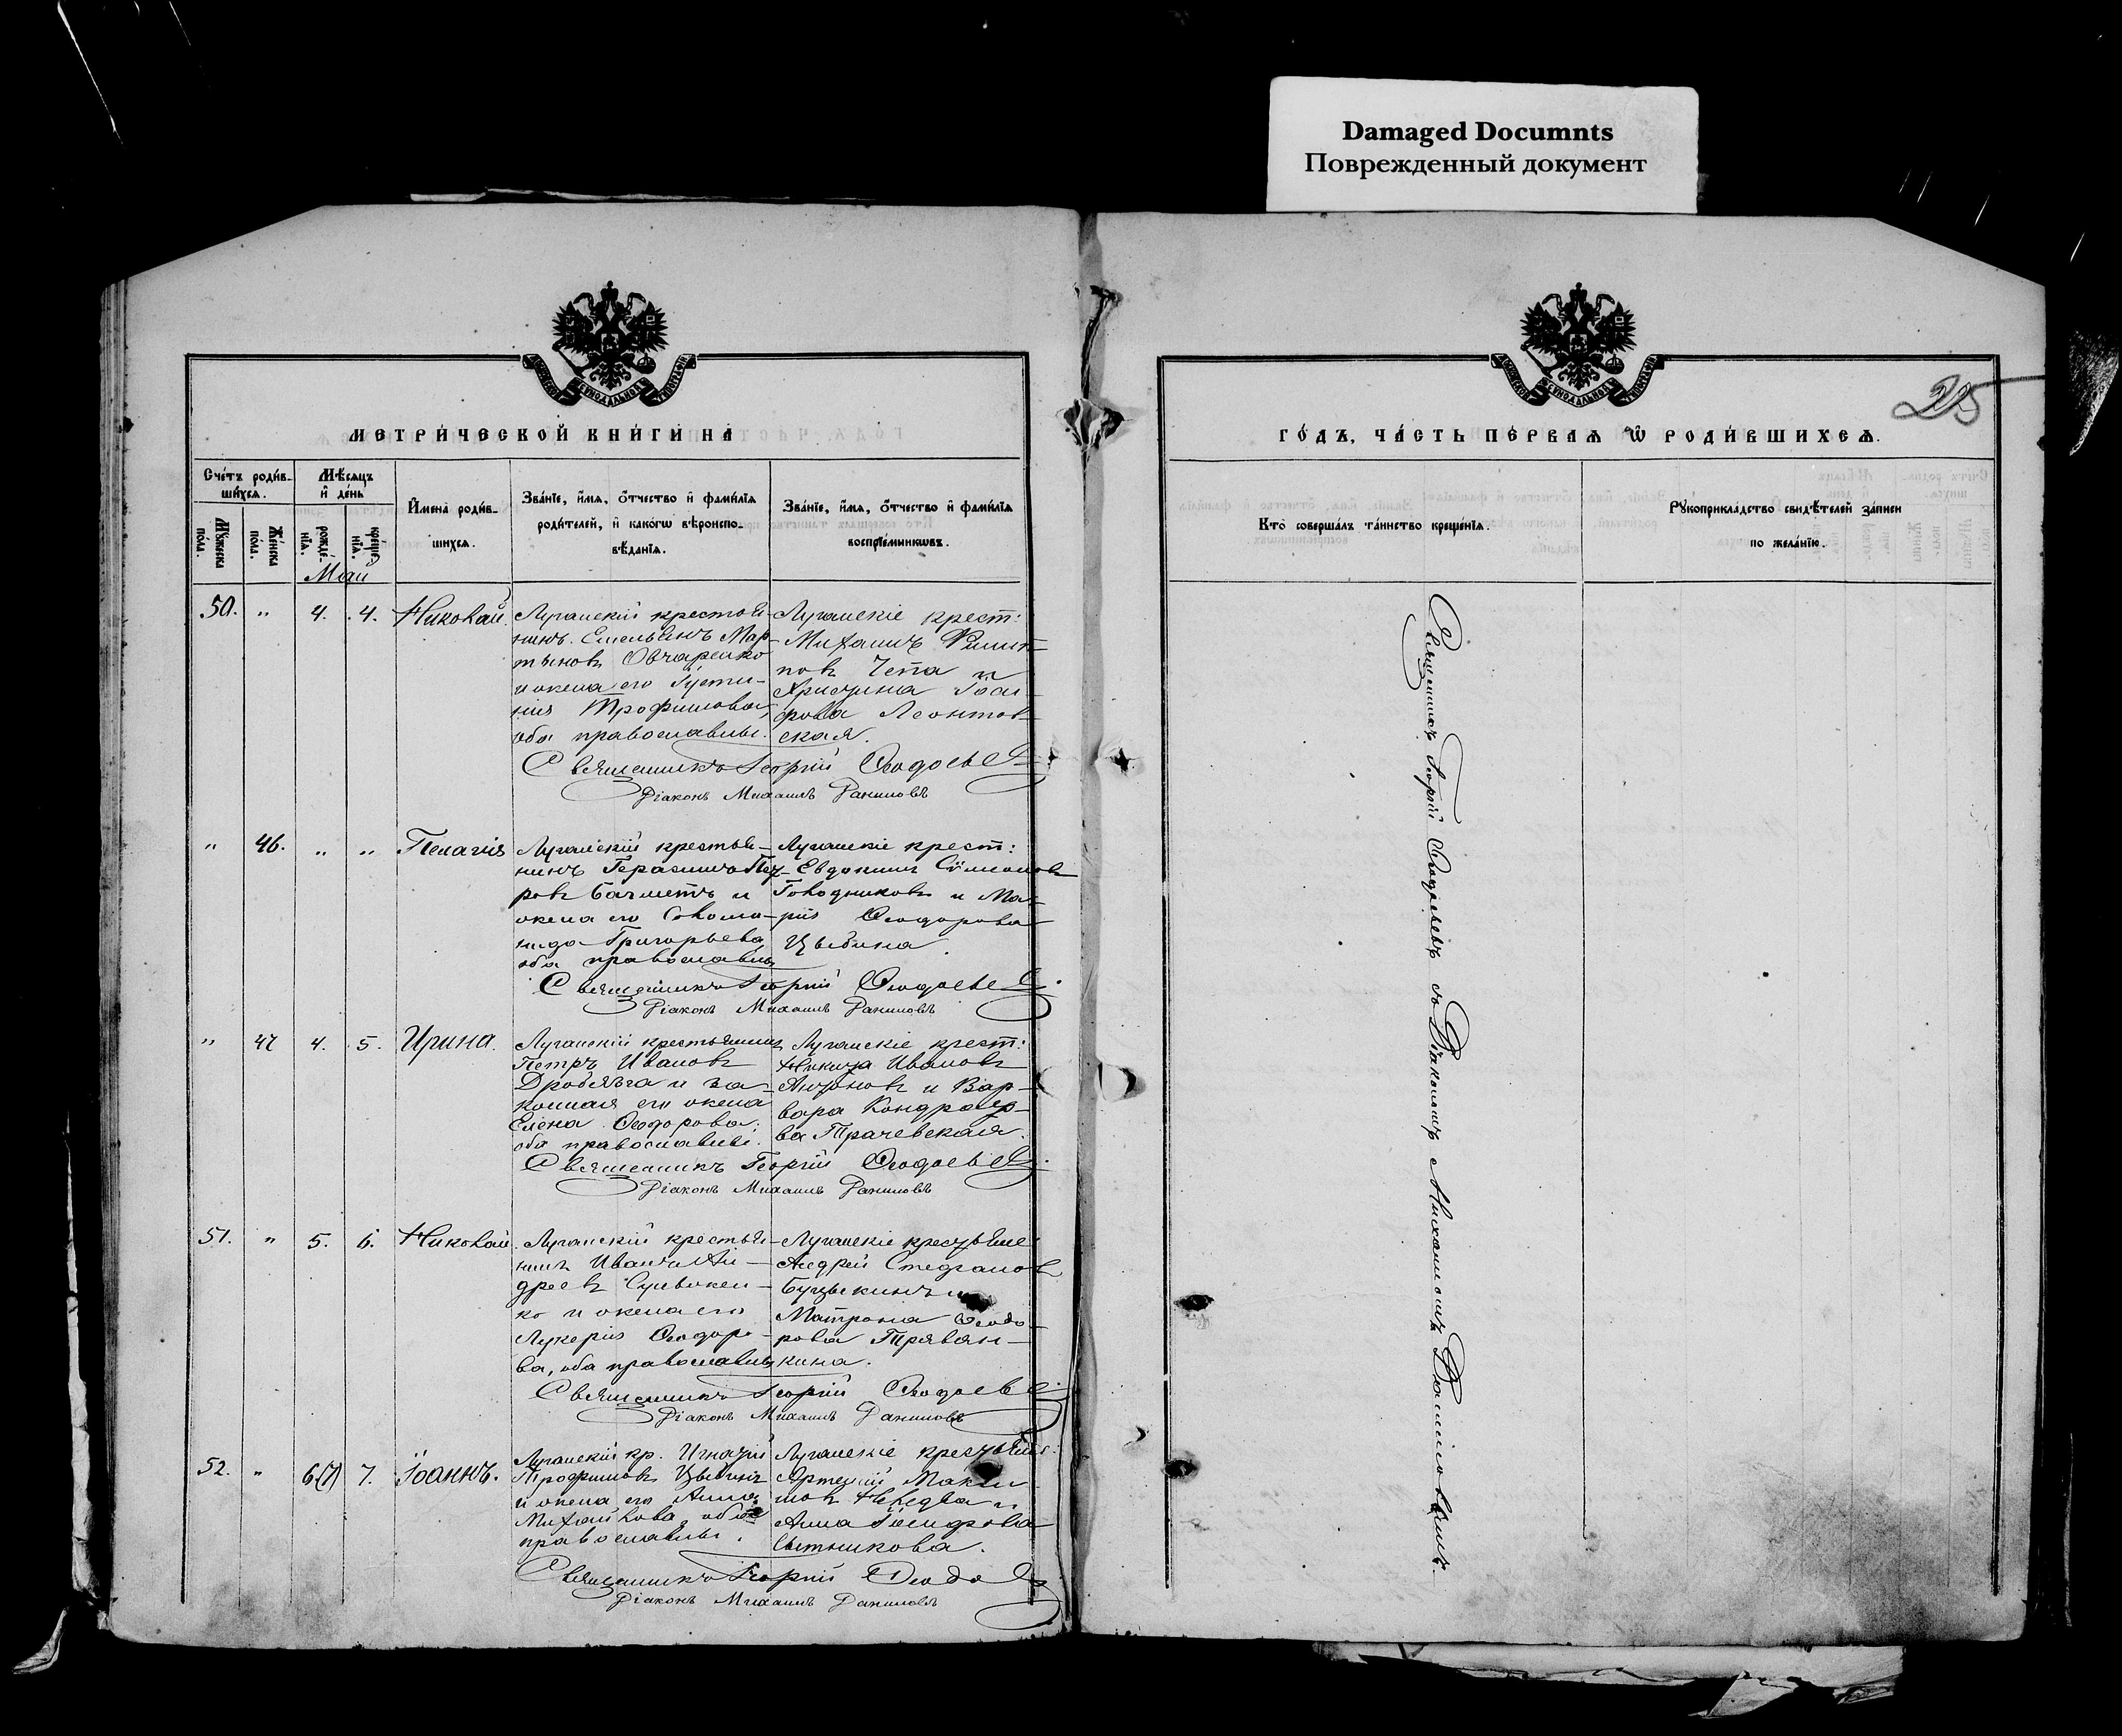 Damaged Documnts
Поврежденный документ
МЕТРИ́ЧЕСКОЙ КНИ́ГИ НА
Сче́тъ роди́в-
ши́хся.
Мѣ́сяцъ
и҆ де́нь
Му́жеска
по́ла.
Же́нска
по́ла.
рожде́-
нїя.
креще́-
нїя.
И҆мена̀ роди́в-
шихся.
Зва́нїе, и҆́мя, ѻ҆́тчество и҆ фами́лїя
роди́телей, и҆ како́гѡ вѣроиспо-
вѣ́данїя.
Зва́нїе, и҆́мя, ѻ҆́тчество и҆ фами́лїя
воспрїе́мникѡвъ.
Май
50. " 4. 4. Николай.
Луганскій крестья-
нинъ Емельянъ Мар-
тыновъ Овчаренко
и жена его Іусти-
нія Трофимова,
оба православны.
Луганскіе крест:
Михаилъ Филип-
повъ Чепа и
Христина Іоси-
фова Леонтов-
ская.
Священникъ Георгій Ѳеодосьевъ
Діаконъ Михаилъ Даниловъ
" 46. " " Пелагія
Луганскій крестья-
нинъ Герасимъ Пет-
ровъ Бахметъ и
жена его Соломо-
нида Григорьева,
оба православны
Луганскіе крест:
Евдокимъ Сѵмеоновъ
Голодниковъ и Ма-
рія Ѳеодорова
Цыбина
Священникъ Георгій Ѳеодосьевъ
Діаконъ Михаилъ Даниловъ
" 47 4. 5. Ирина.
Луганскій крестьянинъ
Петръ Ивановъ
Дробязга и за-
конная его жена
Елена Ѳеодорова,
оба православные.
Луганскіе крест:
Никита Ивановъ
Антоновъ и Вар-
вара Кондрать-
ва Трачевская.
Священникъ Георгій Ѳеодосьевъ
Діаконъ Михаилъ Даниловъ
51. " 5. 6. Николай.
Луганскій крестья-
нинъ Иванъ Ан-
дреевъ
ко и жена его
Лукерія Ѳеодоро-
ва, оба православны
Луганскіе крестьяне
Андрей Стефановъ
Буцыкинъ и
Матрона Ѳеодо-
рова Травян-
кина.
Священникъ Георгій Ѳеодосьевъ
Діаконъ Михаилъ Даниловъ
52. " 6(7) 7. Іоаннъ.
Луганскій кр. Игнатій
Трофимовъ Цыбинъ
и жена его Анна
Михайлова, оба
православны.
Луганскіе крестьяне:
Артемій Макси-
мовъ и
Анна Іосифова
Сытникова.
Священникъ Георгій Ѳеодо
Діаконъ Михаилъ Даниловъ
25
ГО́ДЪ, ЧА́СТЬ ПЕ́РВАѦ Ѡ҆ РОДИ́ВШИХСѦ.
Кто̀ соверша́лъ та́инство креще́нїя.
Рꙋкоприкла́дство свидѣ́телей за́писи
по жела́нїю.
Священникъ Георгій Ѳеодосьевъ съ Діакономъ Михаиломъ Даниловымъ.